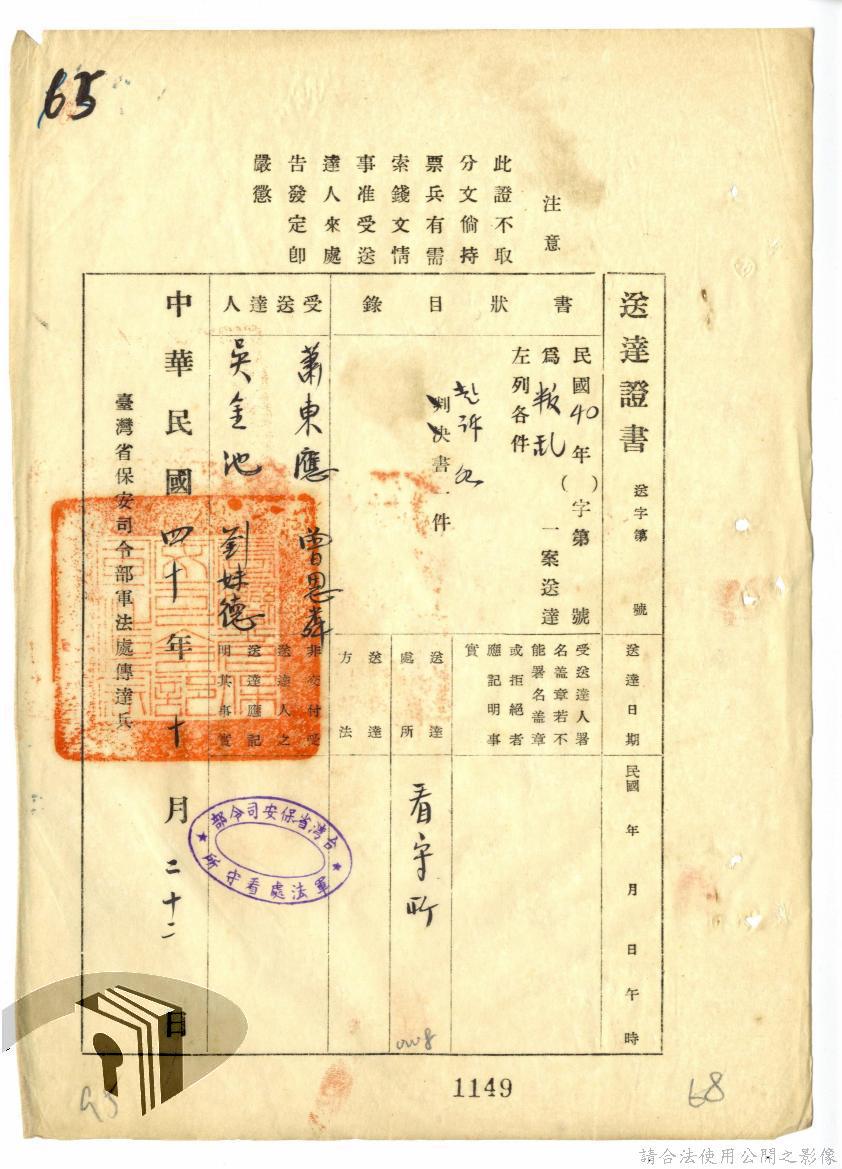 65
注意
此證不取
分文倘持
票兵有需
索錢文情
事准受送
達人來處
告發定即
嚴懲
送達證書
送字第 號
送達日期
民國 年 月 日 午 時
書狀目錄
民國40年( )字第 號
為叛乱 一案送達
左列各件
起訴
判決書一件
受送達人署
名蓋章若不
能署名蓋章
或拒絕者
應記明事
實
送達處所
看守所
送達方法
受送達人
蕭東應
吳金池
劉妹德
非交付受
送達人之
送達應記
明其事實
中華民國四十年十月二十二日
臺灣省保安司令部軍法處傳達兵
台灣省保安司令部
軍法處看守所
1149
68
請合法使用公開之影像